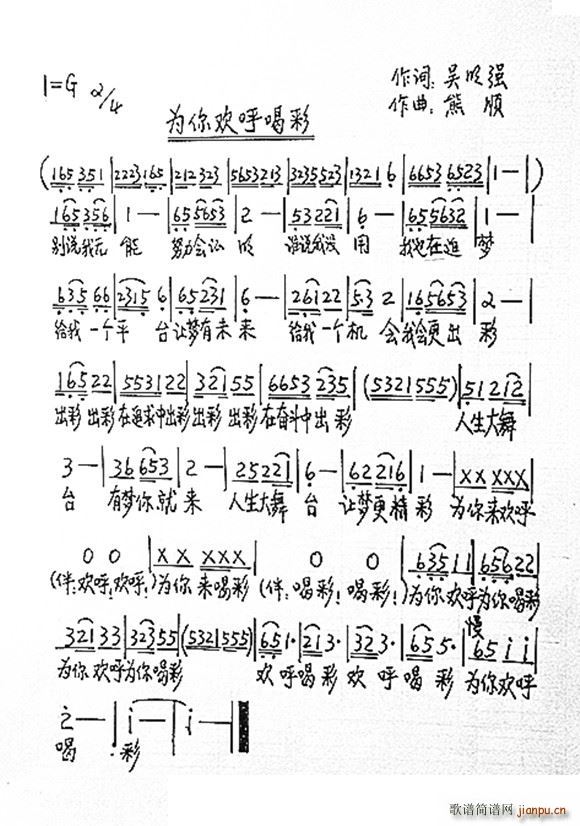 1=G 2/4
作词：吴明强
作曲：熊顺
为你欢呼喝彩
(165 351|2223 165|212 323|5653 213|3235 523|1321 6|6653 6523|1 —|)
165 356|1 —|65 5653|2 —|53221|6 —|655632|1 —|
别说我无 能 努力会证明 谁说我没用 我也在追梦
635 66|2315 6|65 231|6 —|26122|53 2|165653|2 —|
给我一个平 台让梦有未来 给我一个机 会我会更出彩
165 22|5531 22|321 55|6653 235|(5321 555)|51212|
出彩出彩在追求中出彩出彩出彩在奋斗中出彩 人生大舞
3 —|36 653|2 —|25221|6 —|62216|1 —|X X X X X|
台 有梦你就来 人生大舞台 让梦更精彩 为你来欢呼
0 0|X X X X X|0 0|635 11|6562 2|
(伴：欢呼！欢呼！)为你来喝彩(伴：喝彩！喝彩！)为你欢呼为你喝彩
慢
321 33|323 55|(5321 555)|651·|213·|323·|655·|65 i i|
为你欢呼为你喝彩 欢呼喝彩欢呼喝彩 为你欢呼
2 —|i —|i —‖
喝彩
歌谱简谱网
jianpu.cn